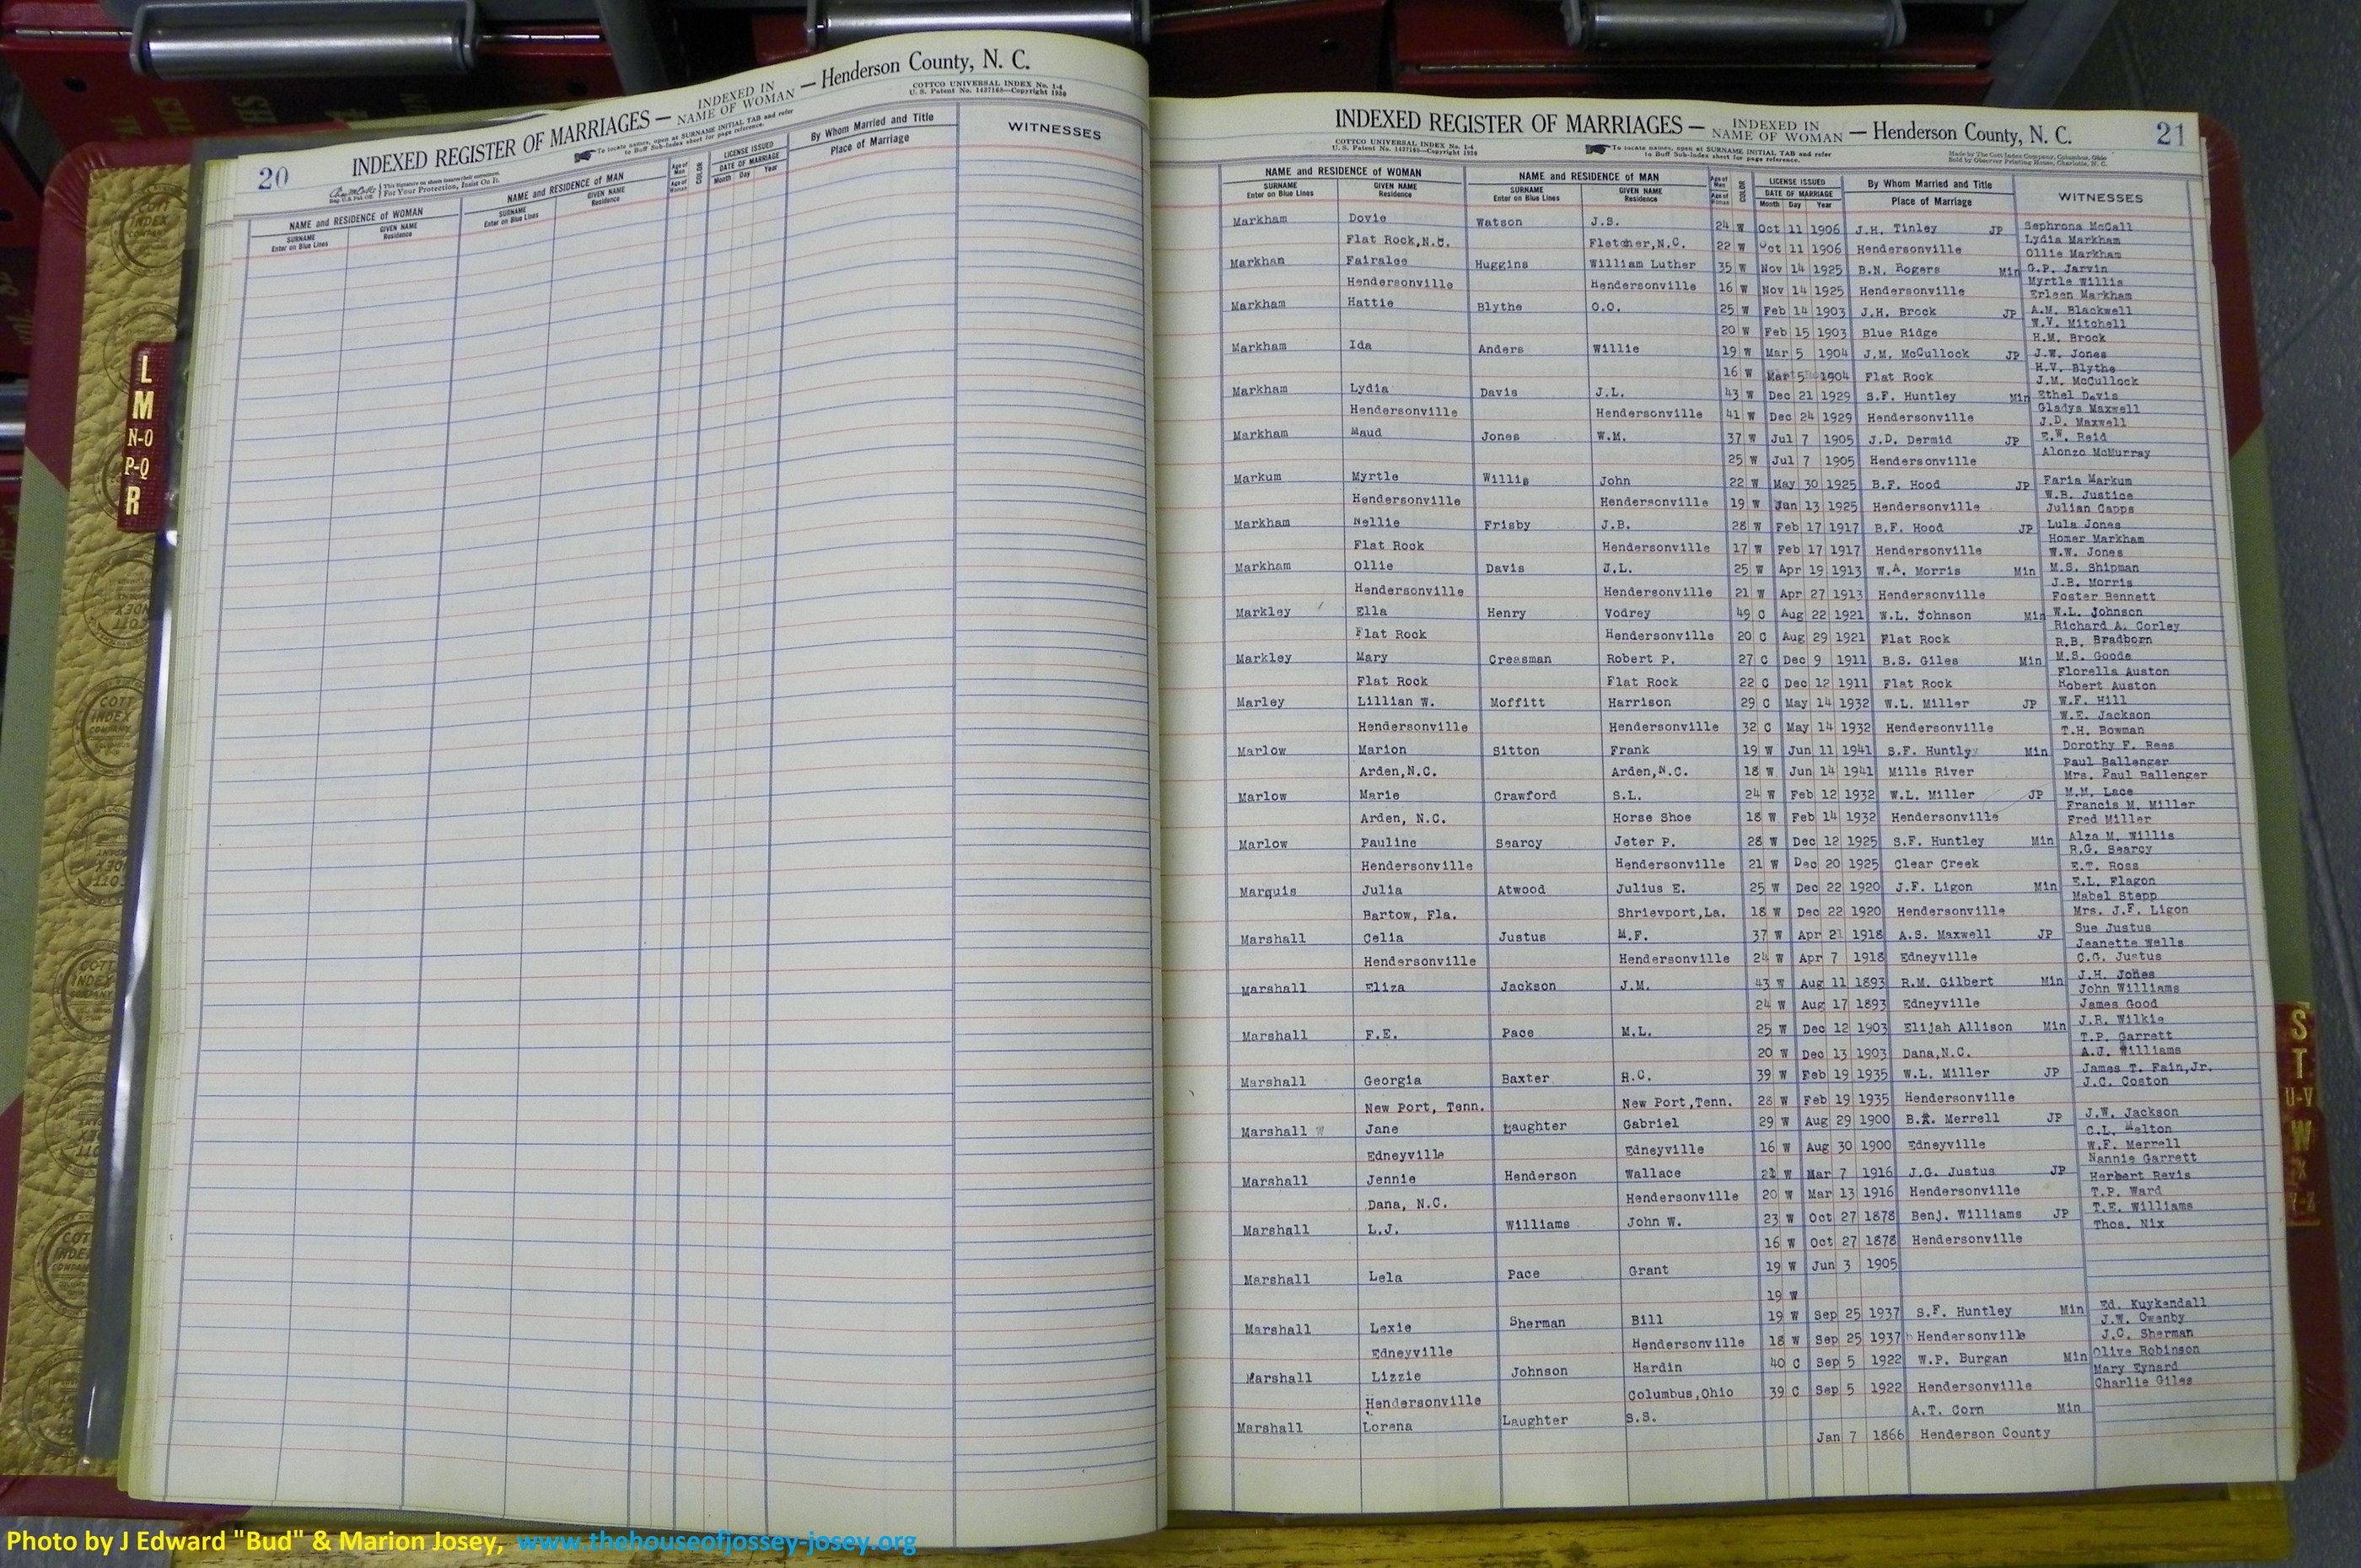 20
INDEXED REGISTER OF MARRIAGES — INDEXED IN NAME OF WOMAN — Henderson County, N. C.
COTTCO UNIVERSAL INDEX No. 1-4
U. S. Patent No. 1437165—Copyright 1930
To locate names, open at SURNAME INITIAL TAB and refer
to Buff Sub-Index sheet for page reference.
For Your Protection, Insist On It.
NAME and RESIDENCE of WOMAN NAME and RESIDENCE OF MAN Age of Man Age of Woman COLOR LICENSE ISSUED DATE OF MARRIAGE By Whom Married and Title Place of Marriage WITNESSES
SURNAME Enter on Blue Lines GIVEN NAME Residence SURNAME Enter on Blue Lines GIVEN NAME Residence Month Day Year
L
M
N-O
P-Q
R
INDEXED REGISTER OF MARRIAGES — INDEXED IN NAME OF WOMAN — Henderson County, N. C. 21
COTTCO UNIVERSAL INDEX No. 1-4
U. S. Patent No. 1437165—Copyright 1930
To locate names, open at SURNAME INITIAL TAB and refer
to Buff Sub-Index sheet for page reference.
Made by The Cott Index Company, Columbus, Ohio
Sold by Observer Printing House, Charlotte, N. C.
NAME and RESIDENCE of WOMAN NAME and RESIDENCE OF MAN Age of Man Age of Woman COLOR LICENSE ISSUED DATE OF MARRIAGE By Whom Married and Title Place of Marriage WITNESSES
SURNAME Enter on Blue Lines GIVEN NAME Residence SURNAME Enter on Blue Lines GIVEN NAME Residence Month Day Year
Markham Dovie Watson J.S. 24 W Oct 11 1906 J.H. Tinley JP Sephrona McCall
Flat Rock,N.C. Fletcher,N.C. 22 W Oct 11 1906 Hendersonville Lydia Markham
Ollie Markham
Markham Fairalee Huggins William Luther 35 W Nov 14 1925 B.N. Rogers Min G.P. Jarvin
Hendersonville Hendersonville 16 W Nov 14 1925 Hendersonville Myrtle Willis
Erleen Markham
Markham Hattie Blythe O.O. 25 W Feb 14 1903 J.H. Brock JP A.M. Blackwell
20 W Feb 15 1903 Blue Ridge W.V. Mitchell
H.M. Brock
Markham Ida Anders Willie 19 W Mar 5 1904 J.M. McCullock JP J.W. Jones
16 W Mar 5 1904 Flat Rock H.V. Blythe
J.M. McCullock
Markham Lydia Davis J.L. 43 W Dec 21 1929 S.F. Huntley Min Ethel Davis
Hendersonville Hendersonville 41 W Dec 24 1929 Hendersonville Gladys Maxwell
J.D. Maxwell
Markham Maud Jones W.M. 37 W Jul 7 1905 J.D. Dermid JP E.W. Reid
25 W Jul 7 1905 Hendersonville Alonzo McMurray
Markum Myrtle Willis John 22 W May 30 1925 B.F. Hood JP Faria Markum
Hendersonville Hendersonville 19 W Jun 13 1925 Hendersonville W.B. Justice
Julian Capps
Markham Nellie Frisby J.B. 28 W Feb 17 1917 B.F. Hood JP Lula Jones
Flat Rock Hendersonville 17 W Feb 17 1917 Hendersonville Homer Markham
W.W. Jones
Markham Ollie Davis J.L. 25 W Apr 19 1913 W.A. Morris Min M.S. Shipman
Hendersonville Hendersonville 21 W Apr 27 1913 Hendersonville J.B. Morris
Foster Bennett
Markley Ella Henry Vodrey 49 C Aug 22 1921 W.L. Johnson Min W.L. Johnson
Flat Rock Hendersonville 20 C Aug 29 1921 Flat Rock Richard A. Corley
R.B. Bradborn
Markley Mary Creasman Robert P. 27 C Dec 9 1911 B.S. Giles Min M.S. Goode
Flat Rock Flat Rock 22 C Dec 12 1911 Flat Rock Florella Auston
Robert Auston
Marley Lillian W. Moffitt Harrison 29 C May 14 1932 W.L. Miller JP W.F. Hill
Hendersonville Hendersonville 32 C May 14 1932 Hendersonville W.E. Jackson
T.H. Bowman
Marlow Marion Sitton Frank 19 W Jun 11 1941 S.F. Huntly Min Dorothy F. Rees
Arden,N.C. Arden,N.C. 18 W Jun 14 1941 Mills River Paul Ballenger
Mrs. Paul Ballenger
Marlow Marie Crawford S.L. 24 W Feb 12 1932 W.L. Miller JP M.M. Lace
Arden, N.C. Horse Shoe 18 W Feb 14 1932 Hendersonville Francis M. Miller
Fred Miller
Marlow Pauline Searcy Jeter P. 28 W Dec 12 1925 S.F. Huntley Min Alza M. Willis
Hendersonville Hendersonville 21 W Dec 20 1925 Clear Creek R.G. Searcy
E.T. Ross
Marquis Julia Atwood Julius E. 25 W Dec 22 1920 J.F. Ligon Min E.L. Flagon
Bartow, Fla. Shrieveport,La. 18 W Dec 22 1920 Hendersonville Mabel Stepp
Mrs. J.F. Ligon
Marshall Celia Justus M.F. 37 W Apr 21 1918 A.S. Maxwell JP Sue Justus
Hendersonville Hendersonville 24 W Apr 7 1918 Edneyville Jeanette Wells
C.G. Justus
Marshall Eliza Jackson J.M. 43 W Aug 11 1893 R.M. Gilbert Min J.H. Jones
24 W Aug 17 1893 Edneyville John Williams
James Good
Marshall F.E. Pace M.L. 25 W Dec 12 1903 Elijah Allison Min J.R. Wilkie
20 W Dec 13 1903 Dana,N.C. T.P. Garrett
A.J. Williams
Marshall Georgia Baxter H.C. 39 W Feb 19 1935 W.L. Miller JP James T. Fain,Jr.
New Port, Tenn. New Port,Tenn. 28 W Feb 19 1935 Hendersonville J.C. Coston
Marshall Jane Laughter Gabriel 29 W Aug 29 1900 Merrell JP J.W. Jackson
Edneyville Edneyville 16 W Aug 30 1900 Edneyville C.L. Melton
W.F. Merrell
Marshall Jennie Henderson Wallace 21 W Mar 7 1916 J.G. Justus JP Nannie Garrett
Dana, N.C. Hendersonville 20 W Mar 13 1916 Hendersonville Herbert Revis
T.P. Ward
Marshall L.J. Williams John W. 23 W Oct 27 1878 Benj. Williams JP T.E. Williams
16 W Oct 27 1878 Hendersonville Thos. Nix
Marshall Lela Pace Grant 19 W Jun 3 1905
19 W
Marshall Lexie Sherman Bill 19 W Sep 25 1937 S.F. Huntley Min Ed. Kuykendall
Edneyville Hendersonville 18 W Sep 25 1937 Hendersonville J.W. Owenby
J.C. Sherman
Marshall Lizzie Johnson Hardin 40 C Sep 5 1922 W.P. Burgan Min Olive Robinson
Hendersonville Columbus,Ohio 39 C Sep 5 1922 Hendersonville Mary Eynard
Charlie Giles
Marshall Lorena Laughter S.S. A.T. Corn Min
Jan 7 1866 Henderson County
S
T
U-V
W
X
Y-Z
Photo by J Edward "Bud" & Marion Josey, www.thehouseofjossey-josey.org